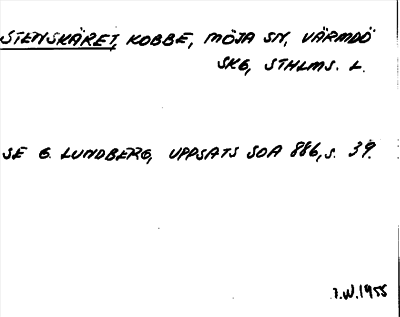 STENSKÄRET, KOBBE, MÖJA SN, VÄRMDÖ
SKG, STHLMS. L.
SE G. LUNDBERG, UPPSATS SOA 886, s. 39.
I.W. 1955